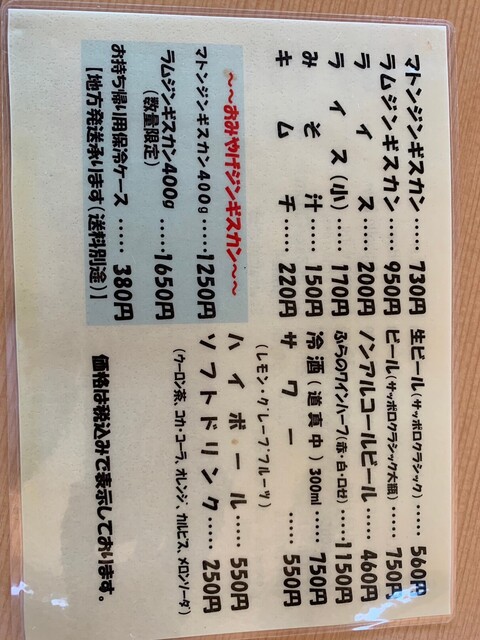 マトンジンギスカン‥‥730円
ラムジンギスカン‥‥950円
ライス‥‥200円
ライス(小)‥‥170円
みそ汁‥‥150円
キムチ‥‥220円
〜〜おみやげジンギスカン〜〜
マトンジンギスカン400g‥‥1250円
ラムジンギスカン400g‥‥1650円
(数量限定)
お持ち帰り用保冷ケース‥‥‥380円
【地方発送承ります(送料別途)】
生ビール(サッポロクラシック)‥‥560円
ビール(サッポロクラシック大瓶)‥‥750円
ノンアルコールビール‥‥460円
ふらのワインハーフ(赤・白・ロゼ)‥‥1150円
冷酒(道真中)300ml‥‥750円
サワー‥‥550円
(レモン・グレープフルーツ)
ハイボール‥‥‥550円
ソフトドリンク‥‥‥250円
(ウーロン茶、コカ・コーラ、オレンジ、カルピス、メロンソーダ)
価格は税込みで表示しております。